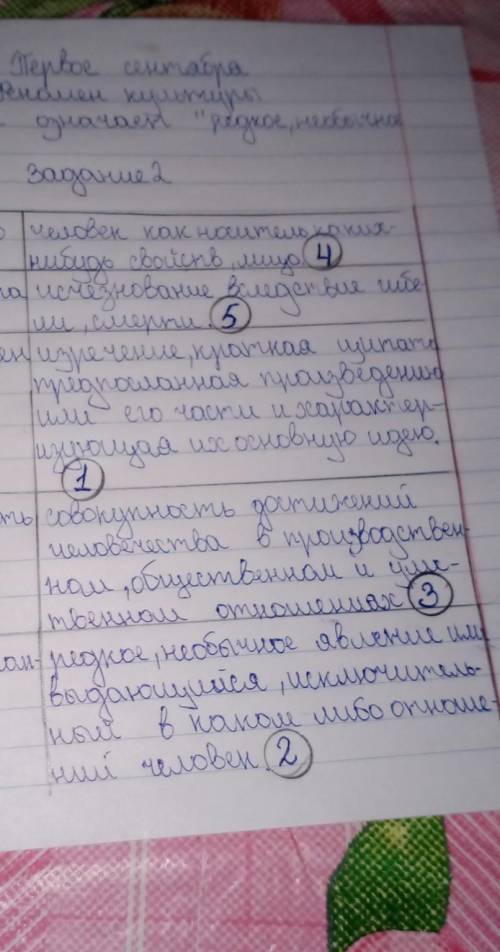 Первое сентабра
Феномен культуры
означает "редкое, необычное
Задание 2
человек как носитель каких-
нибудь свойств, лицо. 4
исчезнование вследствие гибе-
ли, смерти. 5
изречение, краткая цитата
предпосланная произведению
или его части и характер-
изующая их основную идею.
1
ть совокупность достижений
человечества в производствен-
ном, общественном и умс-
твенном отношениях 3
редкое, необычное явление или
выдающийся, исключитель-
ный в каком либо отноше-
ний человек. 2